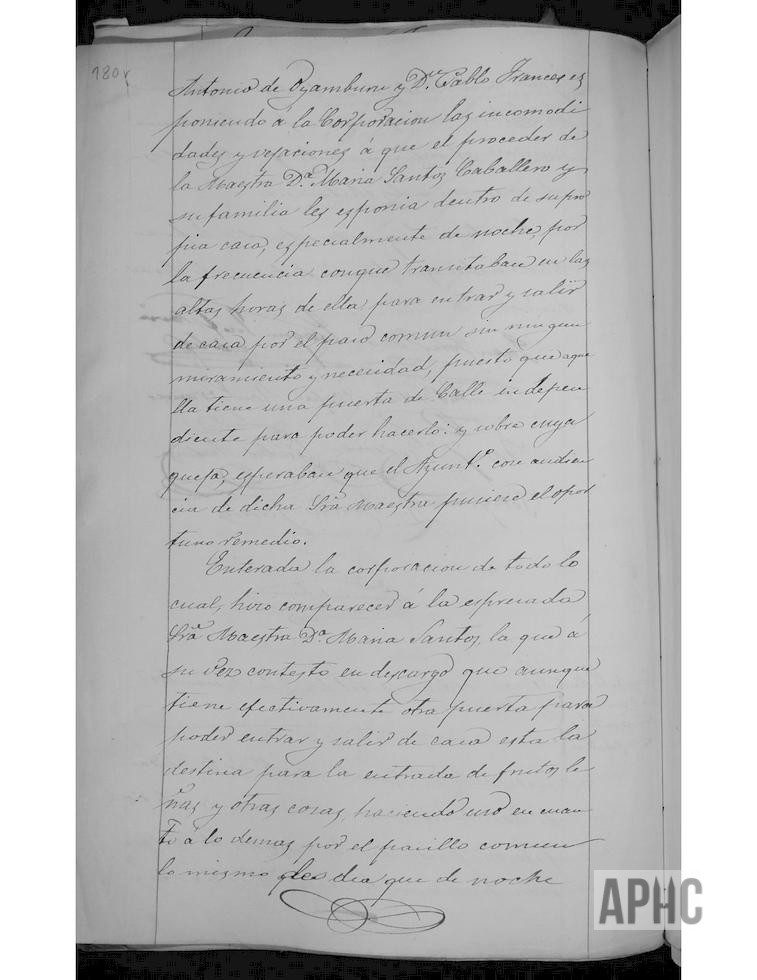 180v
Antonio de Oyamburu y Dn. Pablo Frances es
poniendo á la Corporacion las incomodi
dades y vejaciones á que el proceder de
la Maestra Da. Maria Santos Caballero y
su familia les esponia dentro de su pro
pia casa, especialmente de noche, por
la frecuencia conque transitaban en las
altas horas de ella para entrar y salir
de casa por el paso comun sin ningun
miramiento y necesidad, puesto que aque
lla tiene una puerta de Calle indepen
diente para poder hacerlo: y sobre cuya
queja, esperaban que el Ayunto. con audien
cia de dicha Sra Maestra pusiese el opor
tuno remedio.
Enterada la corporacion de todo lo
cual, hizo comparecer á la espresada
Sra Maestra Da. Maria Santos, la que á
su vez contesto en descargo que aunque
tiene efectivamente otra puerta para
poder entrar y salir de casa esta la
destina para la entrada de frutos le
ñas y otras cosas, haciendo uso en cuan
to á lo demas por el pasillo comun
lo mismo de dia que de noche
APHC